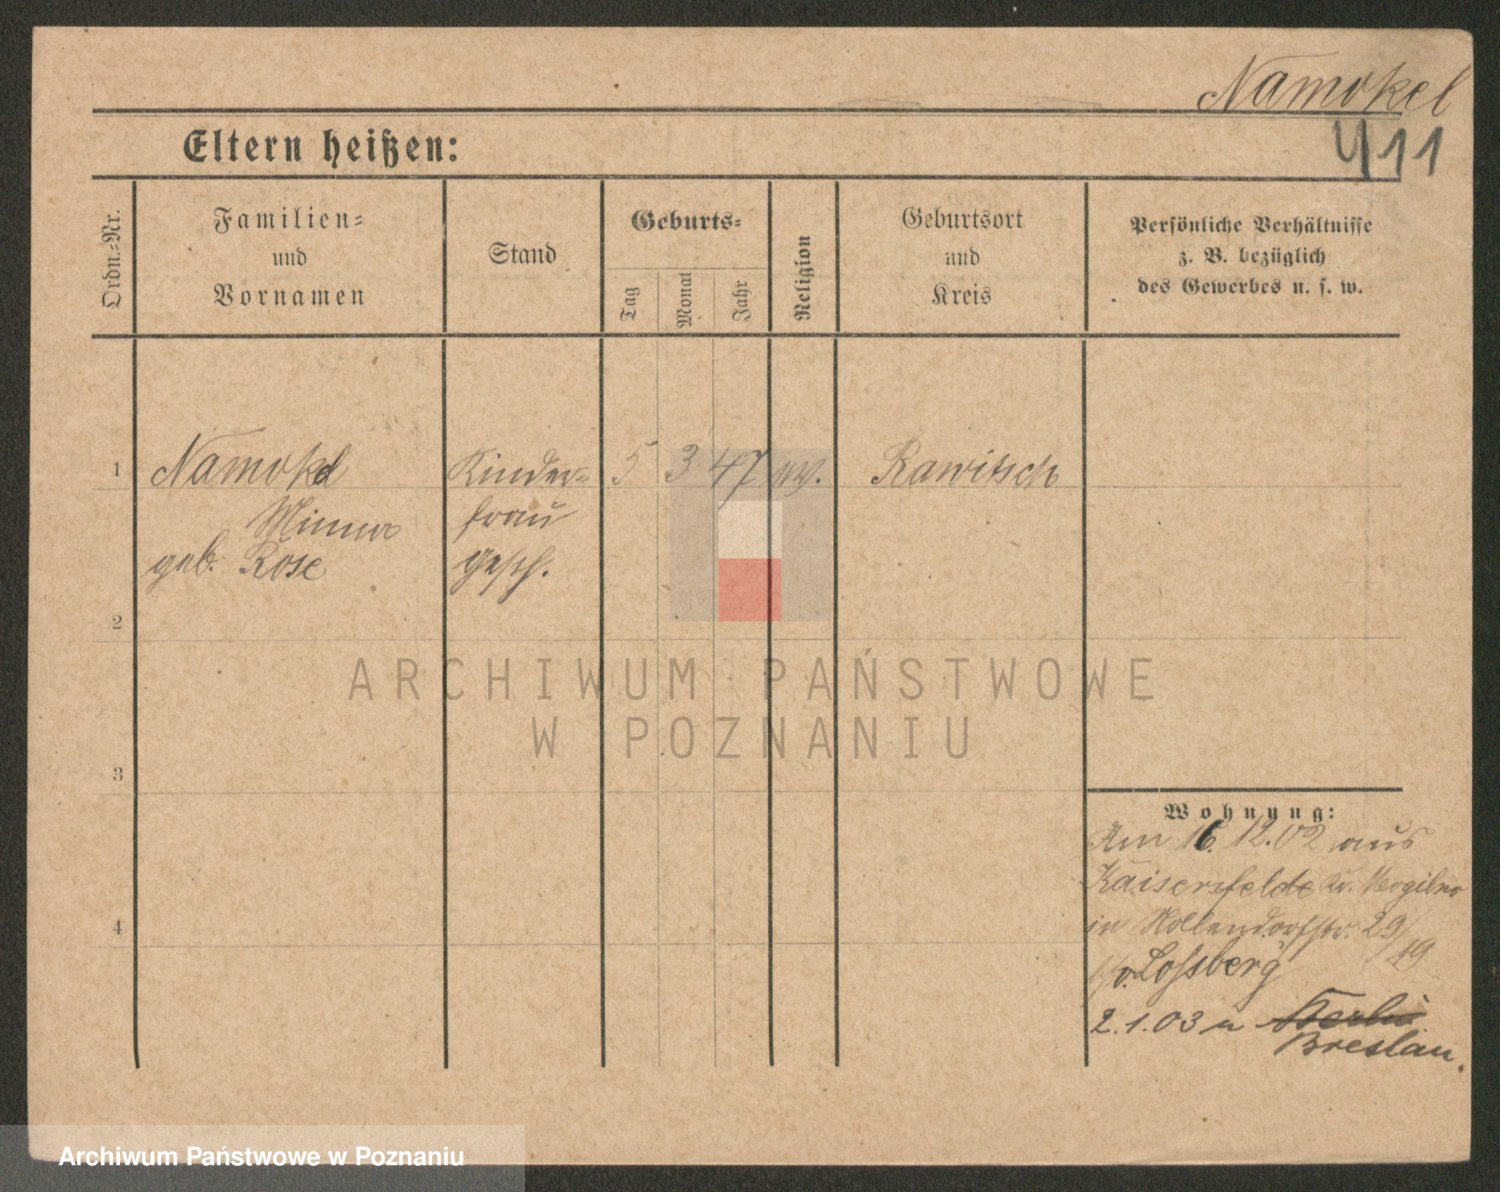 Namokel
411
Eltern heißen:
Ordn.=Nr.
Familien=
und
Vornamen
Stand
Geburts=
Tag
Monat
Jahr
Religion
Geburtsort
und
Kreis
Persönliche Verhältnisse
z. B. bezüglich
des Gewerbes u. s. w.
1
Namokel
Minna
geb. Rose
Kinder=
frau
gesch.
5
3
47
ev.
Rawitsch
2
3
4
ARCHIWUM PAŃSTWOWE
W POZNANIU
Wohnung:
Am 16. 12.02 aus
Kaisersfelde Kr. Mogilno
in Hollendorfstr. 29/
19
b/v. Lossberg
2.1.03 n Berlin
Breslau.
Archiwum Państwowe w Poznaniu